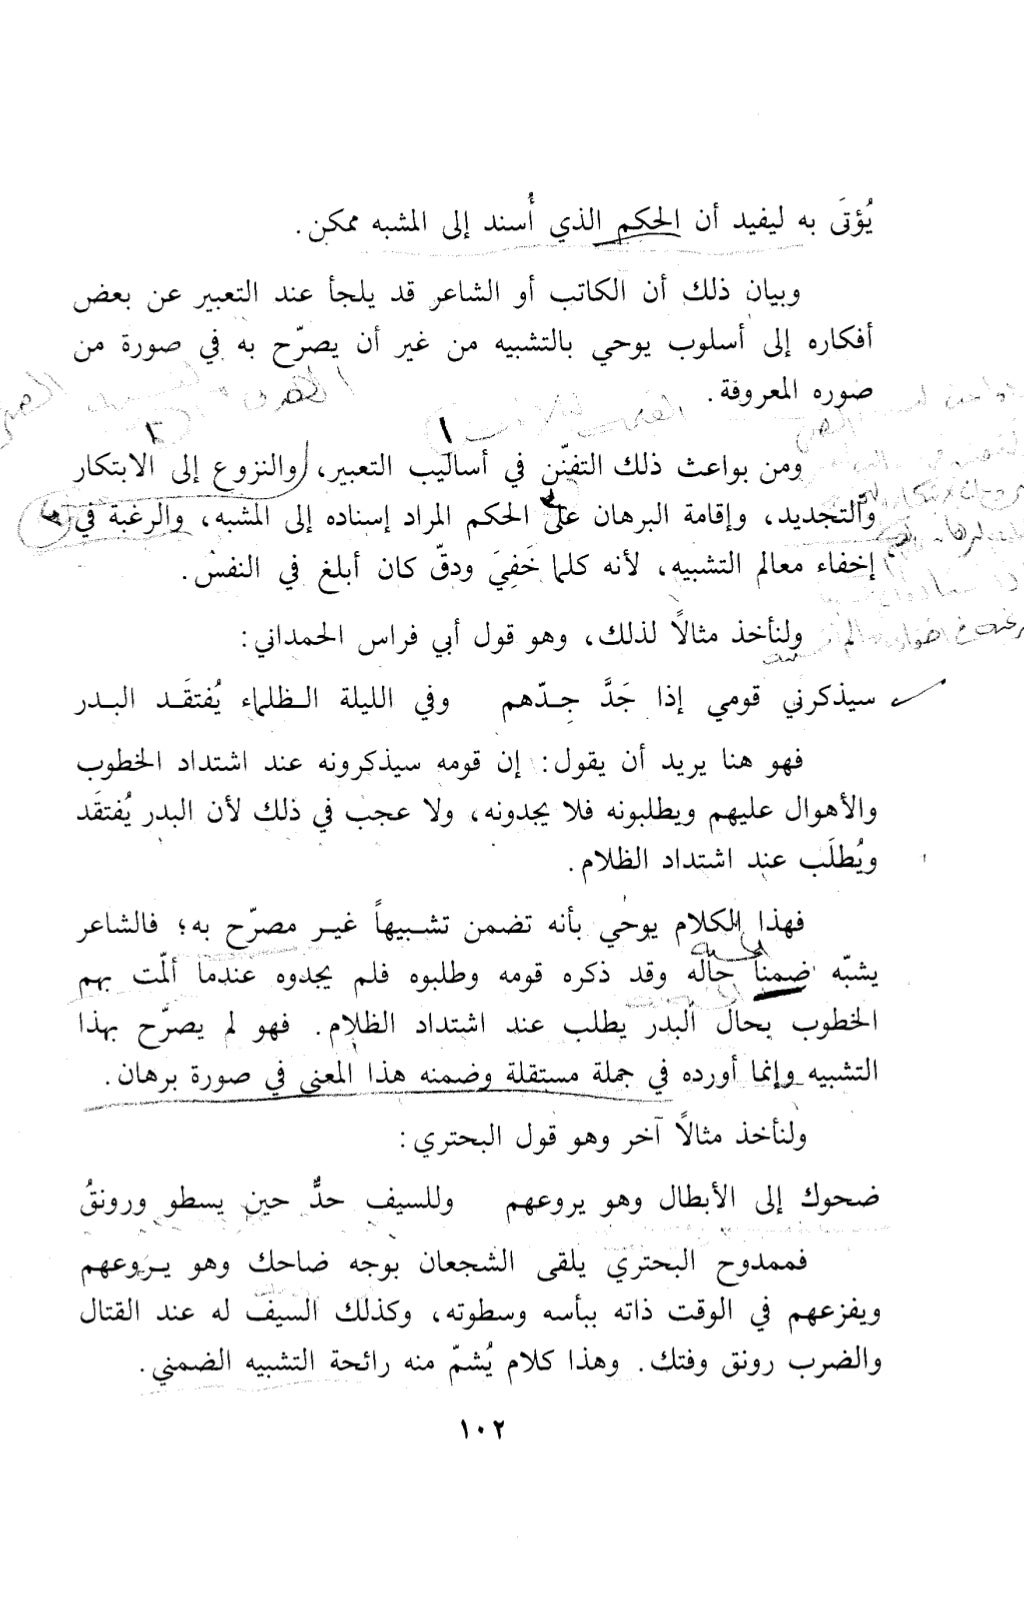 يُؤتَى به ليفيد أن الحكم الذي أُسند إلى المشبه ممكن.
وبيان ذلك أن الكاتب أو الشاعر قد يلجأ عند التعبير عن بعض
أفكاره إلى أسلوب يوحي بالتشبيه من غير أن يصرّح به في صورة من
صوره المعروفة.
ومن بواعث ذلك التفنّن في أساليب التعبير، والنزوع إلى الابتكار
والتجديد، وإقامة البرهان على الحكم المراد إسناده إلى المشبه، والرغبة في
إخفاء معالم التشبيه، لأنه كلما خَفِيَ ودقّ كان أبلغ في النفس.
ولنأخذ مثالاً لذلك، وهو قول أبي فراس الحمداني:
سيذكرني قومي إذا جَدَّ جِـدّهم وفي الليلة الـظلماء يُفتقَـد البـدر
فهو هنا يريد أن يقول: إن قومه سيذكرونه عند اشتداد الخطوب
والأهوال عليهم ويطلبونه فلا يجدونه، ولا عجب في ذلك لأن البدر يُفتقَد
ويُطلَب عند اشتداد الظلام.
فهذا الكلام يوحي بأنه تضمن تشـبيهاً غيـر مصرّح به؛ فالشاعر
يشبّه ضمناً حاله وقد ذكره قومه وطلبوه فلم يجدوه عندما ألمّت بهم
الخطوب بحال البدر يطلب عند اشتداد الظلام. فهو لم يصرّح بهذا
التشبيه وإنما أورده في جملة مستقلة وضمنه هذا المعنى في صورة برهان.
ولنأخذ مثالاً آخر وهو قول البحتري:
ضحوك إلى الأبطال وهو يروعهم وللسيف حدٌّ حين يسطو ورونقُ
فممدوح البحتري يلقى الشجعان بوجه ضاحك وهو يـروعهم
ويفزعهم في الوقت ذاته ببأسه وسطوته، وكذلك السيف له عند القتال
والضرب رونق وفتك. وهذا كلام يُشمّ منه رائحة التشبيه الضمني.
١٠٢